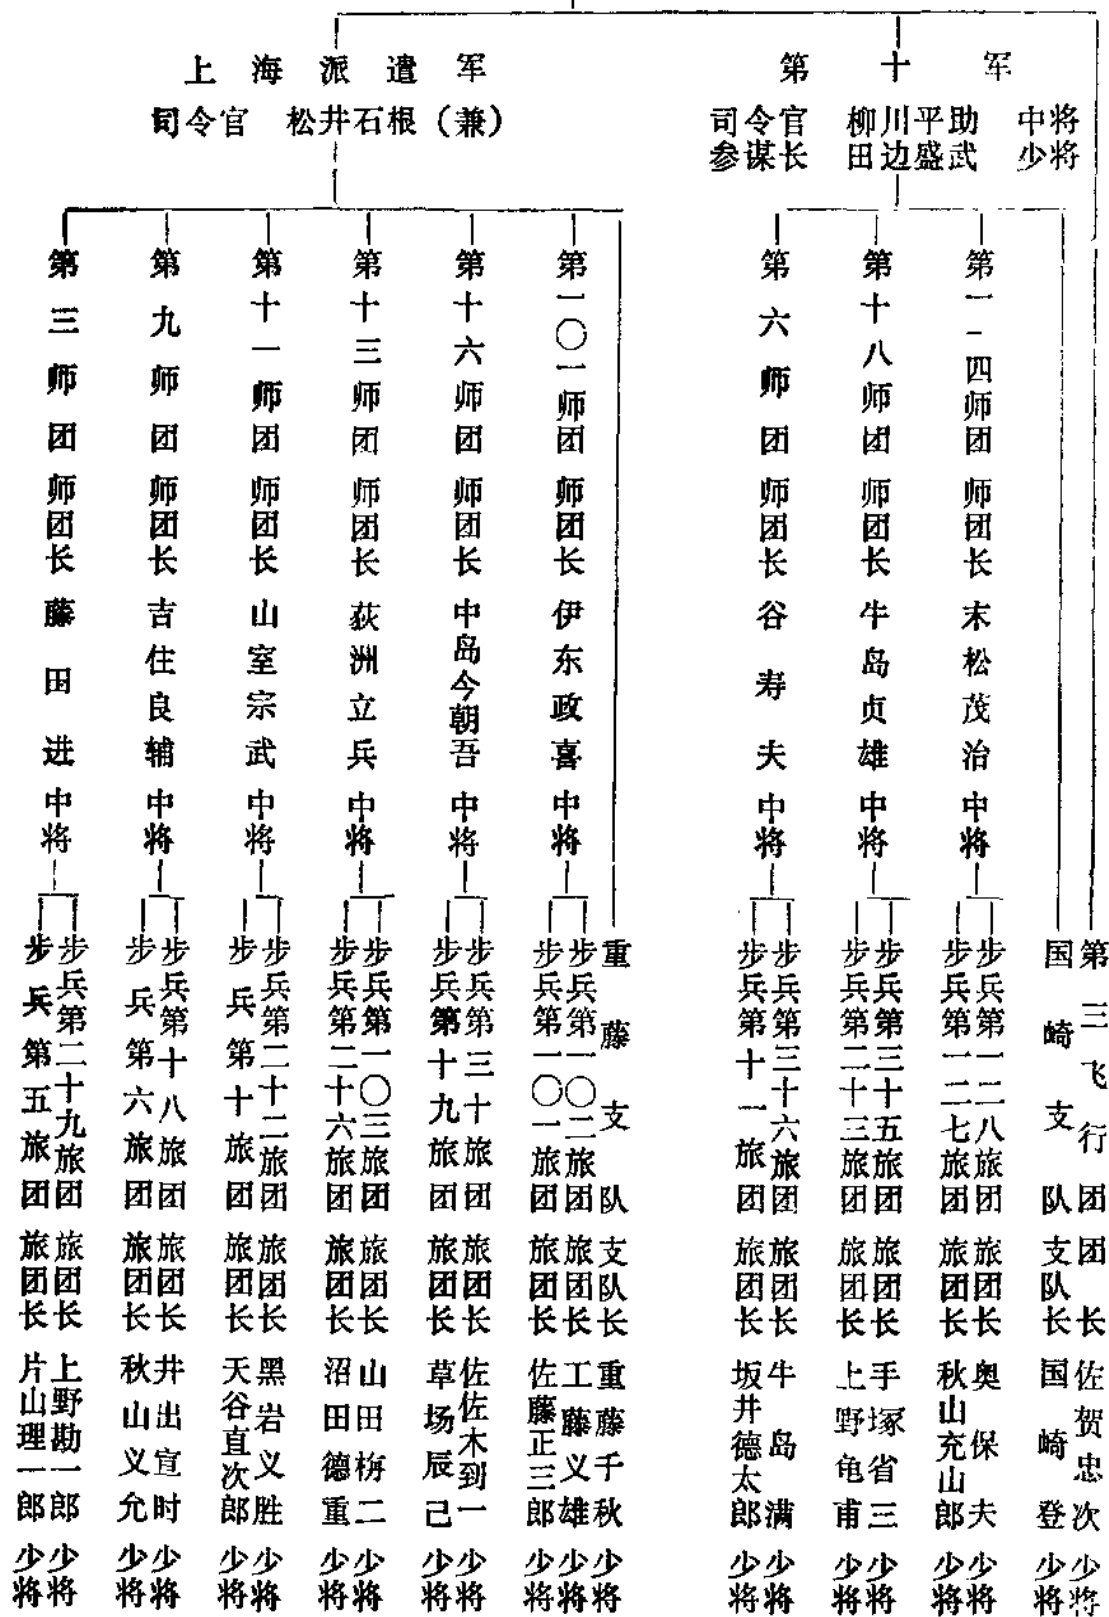 上海派遣军
司令官 松井石根(兼)
第十军
司令官 柳川平助 中将
参谋长 田边盛武 少将
第三师团 师团长 藤田进 中将
步兵第五旅团 旅团长 片山理一郎 少将
步兵第二十九旅团 旅团长 上野勘一郎 少将
第九师团 师团长 吉住良辅 中将
步兵第六旅团 旅团长 秋山义允 少将
步兵第十八旅团 旅团长 井出宣时 少将
第十一师团 师团长 山室宗武 中将
步兵第十旅团 旅团长 天谷直次郎 少将
步兵第二十二旅团 旅团长 黑岩义胜 少将
第十三师团 师团长 荻洲立兵 中将
步兵第二十六旅团 旅团长 沼田德重 少将
步兵第一〇三旅团 旅团长 山田栴二 少将
第十六师团 师团长 中岛今朝吾 中将
步兵第十九旅团 旅团长 草场辰己 少将
步兵第三十旅团 旅团长 佐佐木到一 少将
第一〇一师团 师团长 伊东政喜 中将
步兵第一〇一旅团 旅团长 佐藤正三郎 少将
步兵第一〇二旅团 旅团长 工藤义雄 少将
重藤支队 支队长 重藤千秋 少将
第六师团 师团长 谷寿夫 中将
步兵第十一旅团 旅团长 坂井德太郎 少将
步兵第三十六旅团 旅团长 牛岛满 少将
第十八师团 师团长 牛岛贞雄 中将
步兵第二十三旅团 旅团长 上野龟甫 少将
步兵第三十五旅团 旅团长 手塚省三 少将
第一一四师团 师团长 末松茂治 中将
步兵第一二七旅团 旅团长 秋山充山郎 少将
步兵第一二八旅团 旅团长 奥保夫 少将
国崎支队 支队长 国崎登 少将
第三飞行团 团长 佐贺忠次 少将